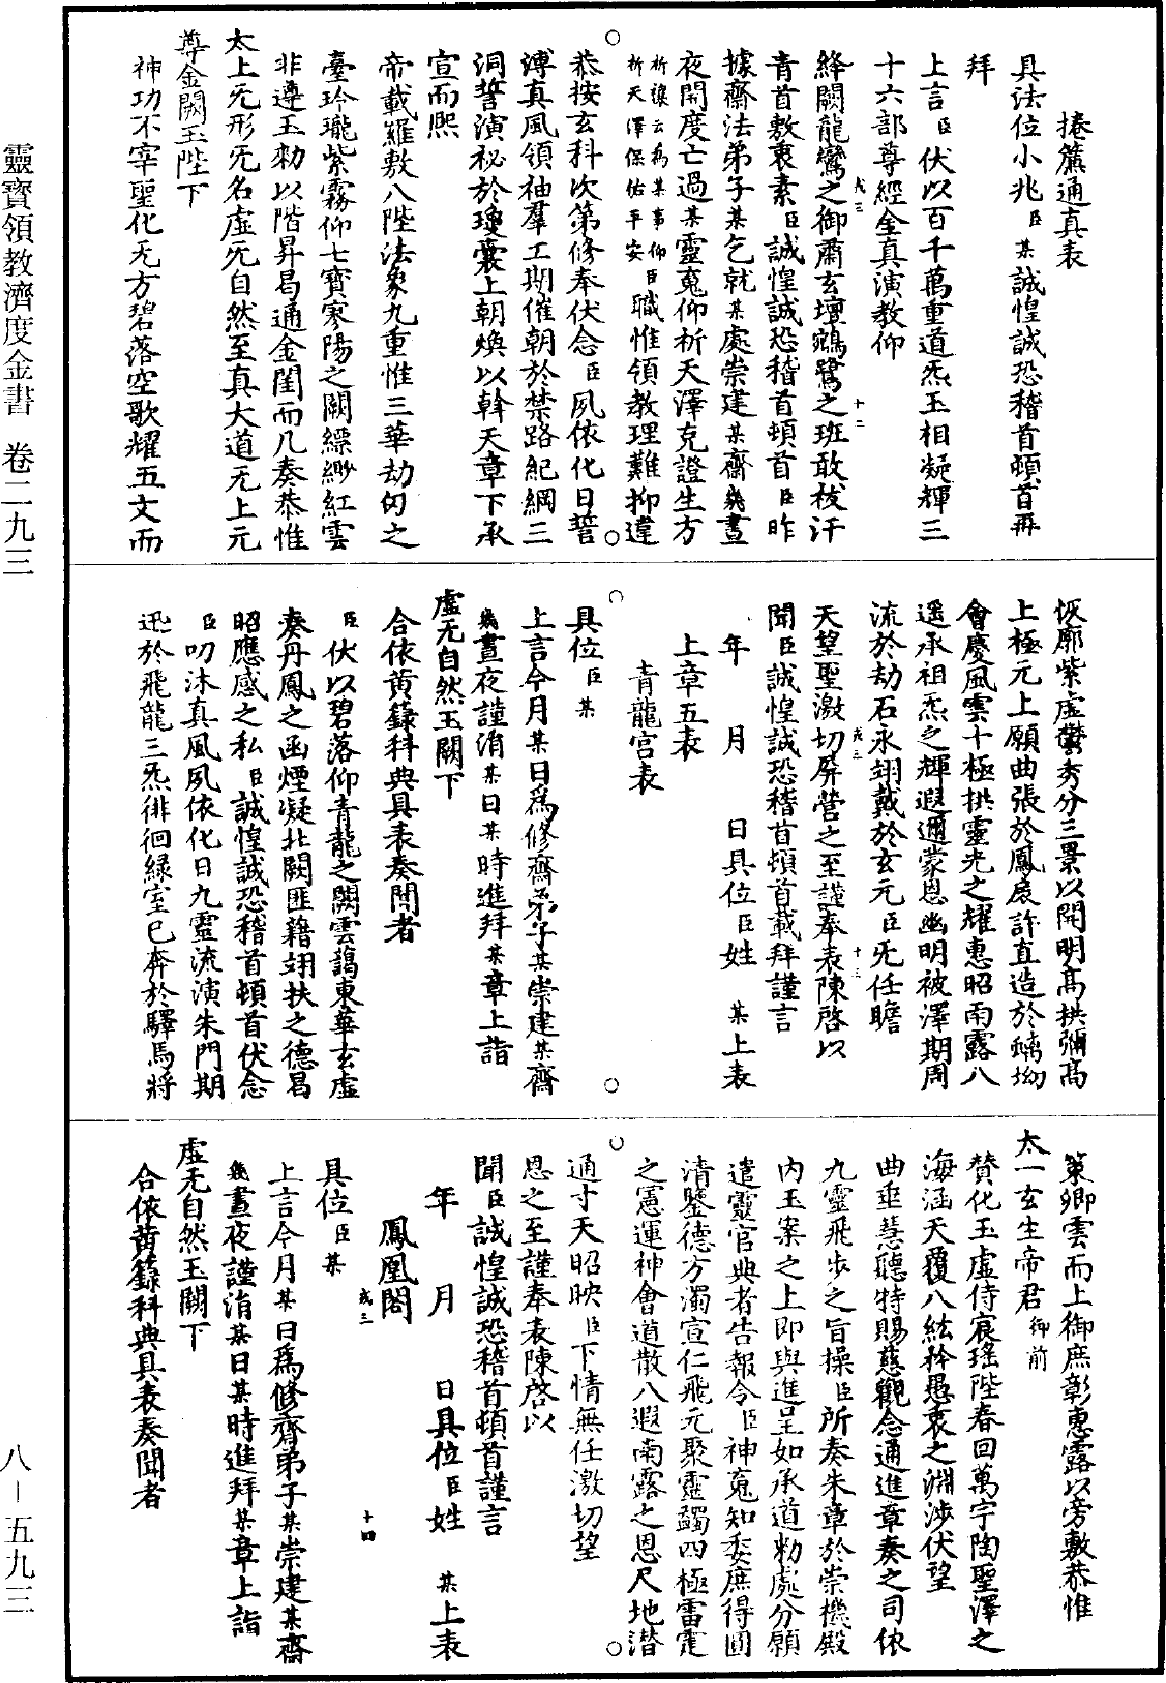 捲簾通真表
具法位小兆臣某誠惶誠恐稽首頓首再
拜
上言臣伏以百千萬重道炁玉相凝輝三
十六部尊經金真演教仰
絳闕龍鸞之御肅玄壇鵷鷺之班敢祓汗
青首敷衷素臣誠惶誠恐稽首頓首臣昨
據齋法弟子某乞就某處崇建某齋幾晝
夜開度亡過某靈䰟仰祈天澤克證生方
祈禳云為某事仰祈天澤保佑平安臣職惟領教理難抑違
恭按玄科次第修奉伏念臣夙依化日誓
溥真風領袖羣工期催朝於禁路紀綱三
洞誓演祕於瓊囊上朝煥以斡天章下承
宣而熙
帝載羅敷八陛法象九重惟三華劫仞之
臺玲瓏紫霧仰七寶寥陽之闕縹緲紅雲
非遵玉勑以階昇曷通金闺而几奏恭惟
太上无形无名虛无自然至真大道无上元
尊金闕玉陛下
神功不宰聖化无方碧落空歌耀五文而
恢廓紫虛欝秀分三景以開明高拱彌高
上極元上願曲張於鳳扆許直造於螭坳
會慶風雲十極拱靈光之耀惠昭雨露八
遥承祖炁之輝遐邇蒙恩幽明被澤期周
流於劫石永翊戴於玄元臣无任瞻
天望聖激切屏營之至謹奉表陳啓以
聞臣誠惶誠恐稽首頓首載拜謹言
年 月 日具位臣姓 某上表
上章五表
青龍宮表
具位臣某
上言今月某日為修齋弟子某崇建某齋
幾晝夜謹涓某日某時進拜某章上詣
虛无自然玉闕下
合依黃籙科典具表奏聞者
臣伏以碧落仰青龍之闕雲藹東華玄虛
奏丹鳳之函煙凝北闕匪藉翊扶之德曷
昭應感之私臣誠惶誠恐稽首頓首伏念
臣叨沐真風夙依化日九靈流演朱門期
迅於飛龍三炁徘徊緑室已奔於驛馬將
策卿雲而上御庶彰惠露以旁敷恭惟
太一玄生帝君御前
贊化玉虛侍宸瑤陛春回萬宇陶聖澤之
海涵天覆八紘矜愚衷之淵涉伏望
曲垂慧聽特賜慈觀念通進章奏之司依
九靈飛步之旨操臣所奏朱章於崇機殿
内玉案之上即與進呈如承道勑處分願
遣靈官典者告報令臣神䰟知委庶得圓
清鑒德方濁宣仁飛元聚靈蠲四極雷霆
之憲運神會道散八遐雨露之恩尺地潜
通寸天昭映臣下情無任激切望
恩之至謹奉表陳啓以
聞臣誠惶誠恐稽首頓首謹言
年 月 日具位臣姓 某上表
鳳凰閣
具位臣某
上言今月某日為修齋弟子某崇建某齋
幾晝夜謹涓某日某時進拜某章上詣
虛无自然玉闕下
合依黃籙科典具表奏聞者
咸三 十二
咸三 十三
咸三 十四
靈寶領教濟度金書 卷二九三
八－五九三